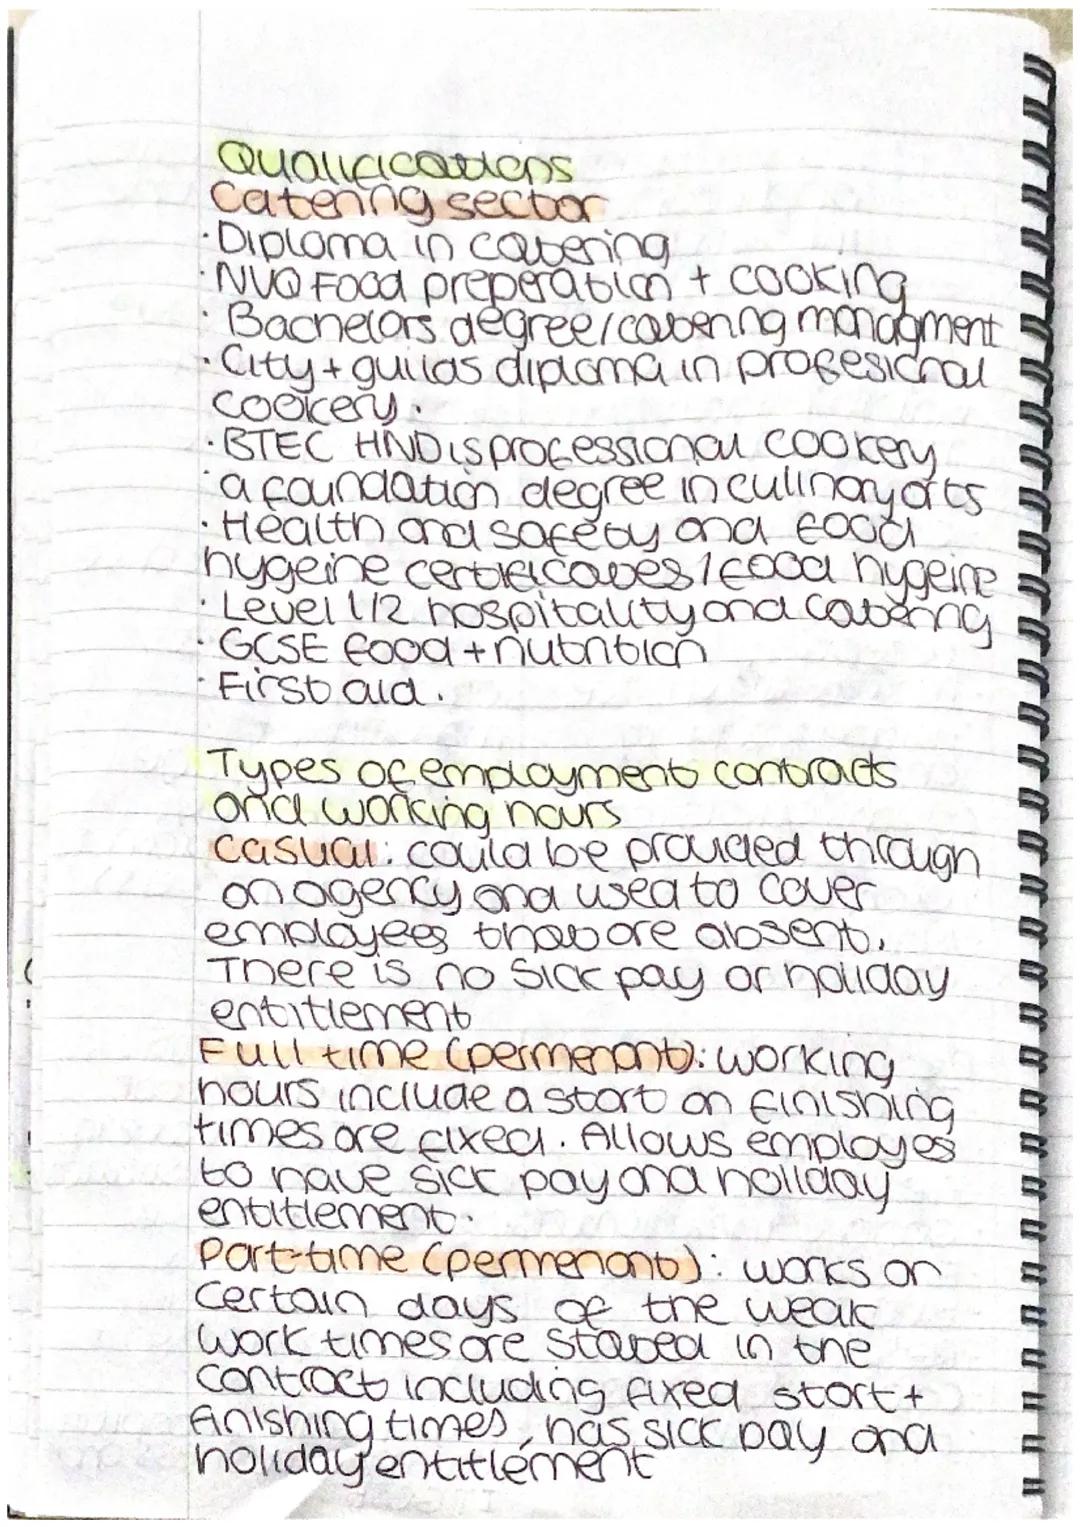 Qualifications
Catering sector
· Diploma in catering
· NVQ Food preperation + cooking
· Bachelors degree/catering managment
· City + guilds diploma in profesional
cookery.
· BTEC HND is professional cookery
· a foundation degree in culinary arts
· Health and safety and food
hygeine certificates / food hygeine
· Level 1/2 hospitality and catering
· GCSE food + nutrition
· First aid.
Types of employment contracts
and working hours
Casual: could be provided through
an agency and used to cover
employees that are absent.
There is no sick pay or holiday
entitlement
Full time (permenant): working
hours include a start on finishing
times are fixed. Allows employes
to have sick pay and holiday
entitlement.
Part-time (permenant): works on
certain days of the weak
work times are stated in the
contract including fixed start +
finishing times, has sick pay and
holiday entitlement